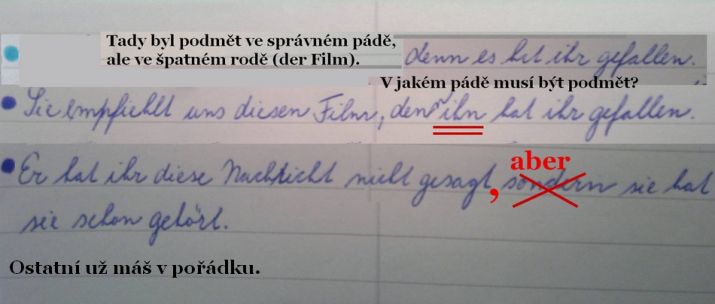 Tady byl podmět ve správném pádě,
ale ve špatném rodě (der Film).
denn es hat ihr gefallen.
V jakém pádě musí být podmět?
Sie empfiehlt uns diesen Film, denn ihn hat ihr gefallen.
aber
Er hat ihr diese Nachricht nicht gesagt, sondern sie hat
sie schon gehört.
Ostatní už máš v pořádku.